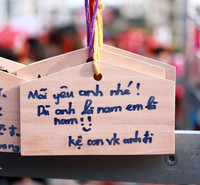 Mãi yêu anh nhé!
Dù anh là nam em là
nam!!
kệ con vk anh đi